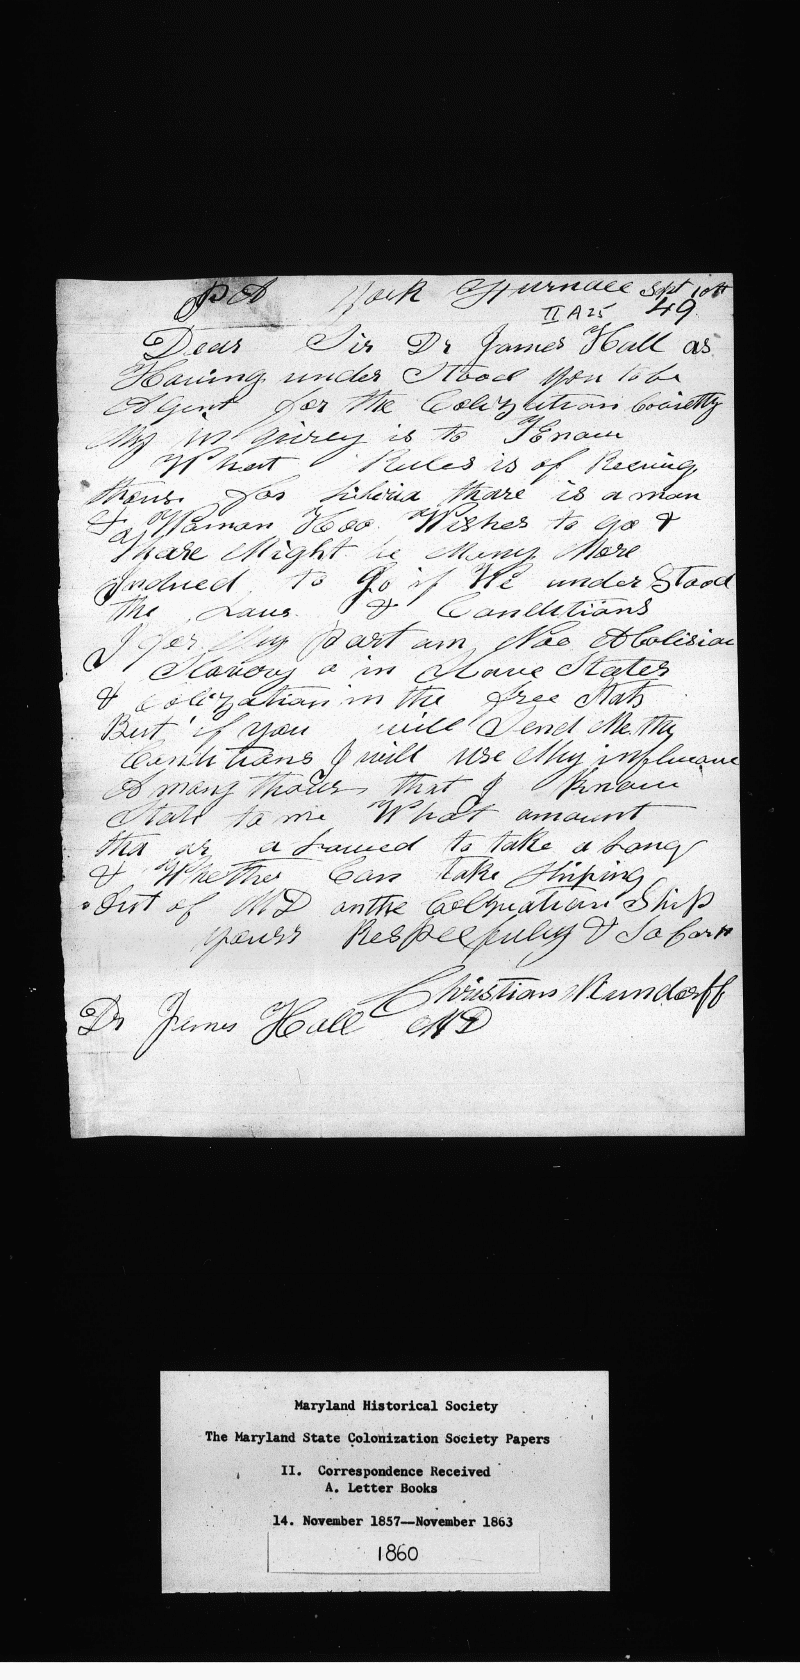 PA York Furnace Spt 10th
II A 25 49
Dear Sir Dr James Hall as
Having under Stood you to be
Agent for the Colizution Coisetty
My in quirey is to Know
What Rules is of Receving
thous for liberia thare is a man
& Woman Hoo Wishes to go &
thare Might be Meny More
Induced to Go if We under Stood
the Laws & Conditions
I for My part am Noo Abolision
Slavory in Slave States
& colization in the free Stats
But if you will Send Me the
Conditions I will use My influance
Among thous that I Know
State to me What amount
tha ar alowed to take a Long
& Whether Can take Shiping
Out of MD on the Coloniation Ship
yours Respecfuley & So forth
Christian
Dr James Hall MD
Maryland Historical Society
The Maryland State Colonization Society Papers
II. Correspondence Received
A. Letter Books
14. November 1857--November 1863
1860